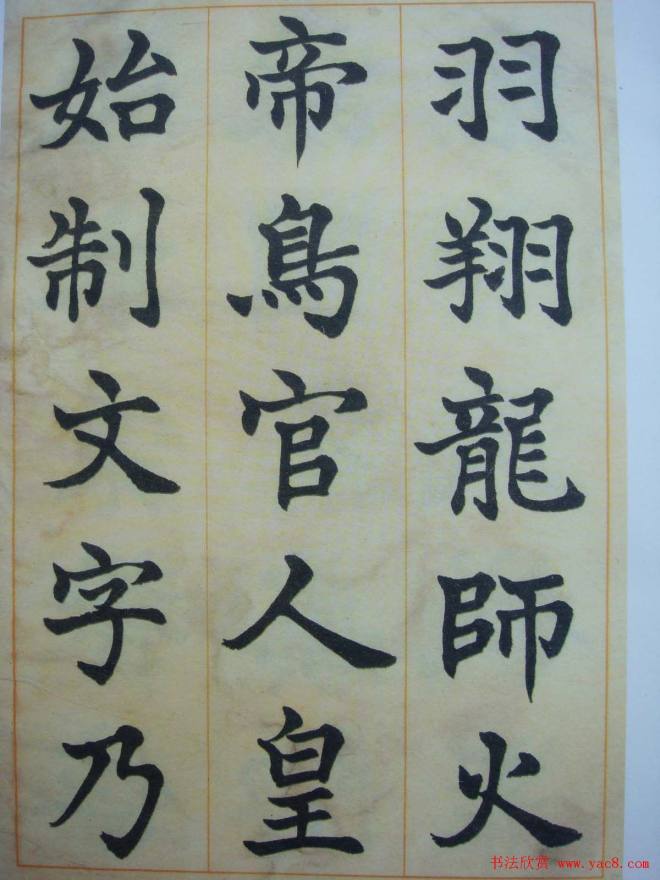 羽翔龍師火
帝鳥官人皇
始制文字乃
书法欣赏 www.yac8.com